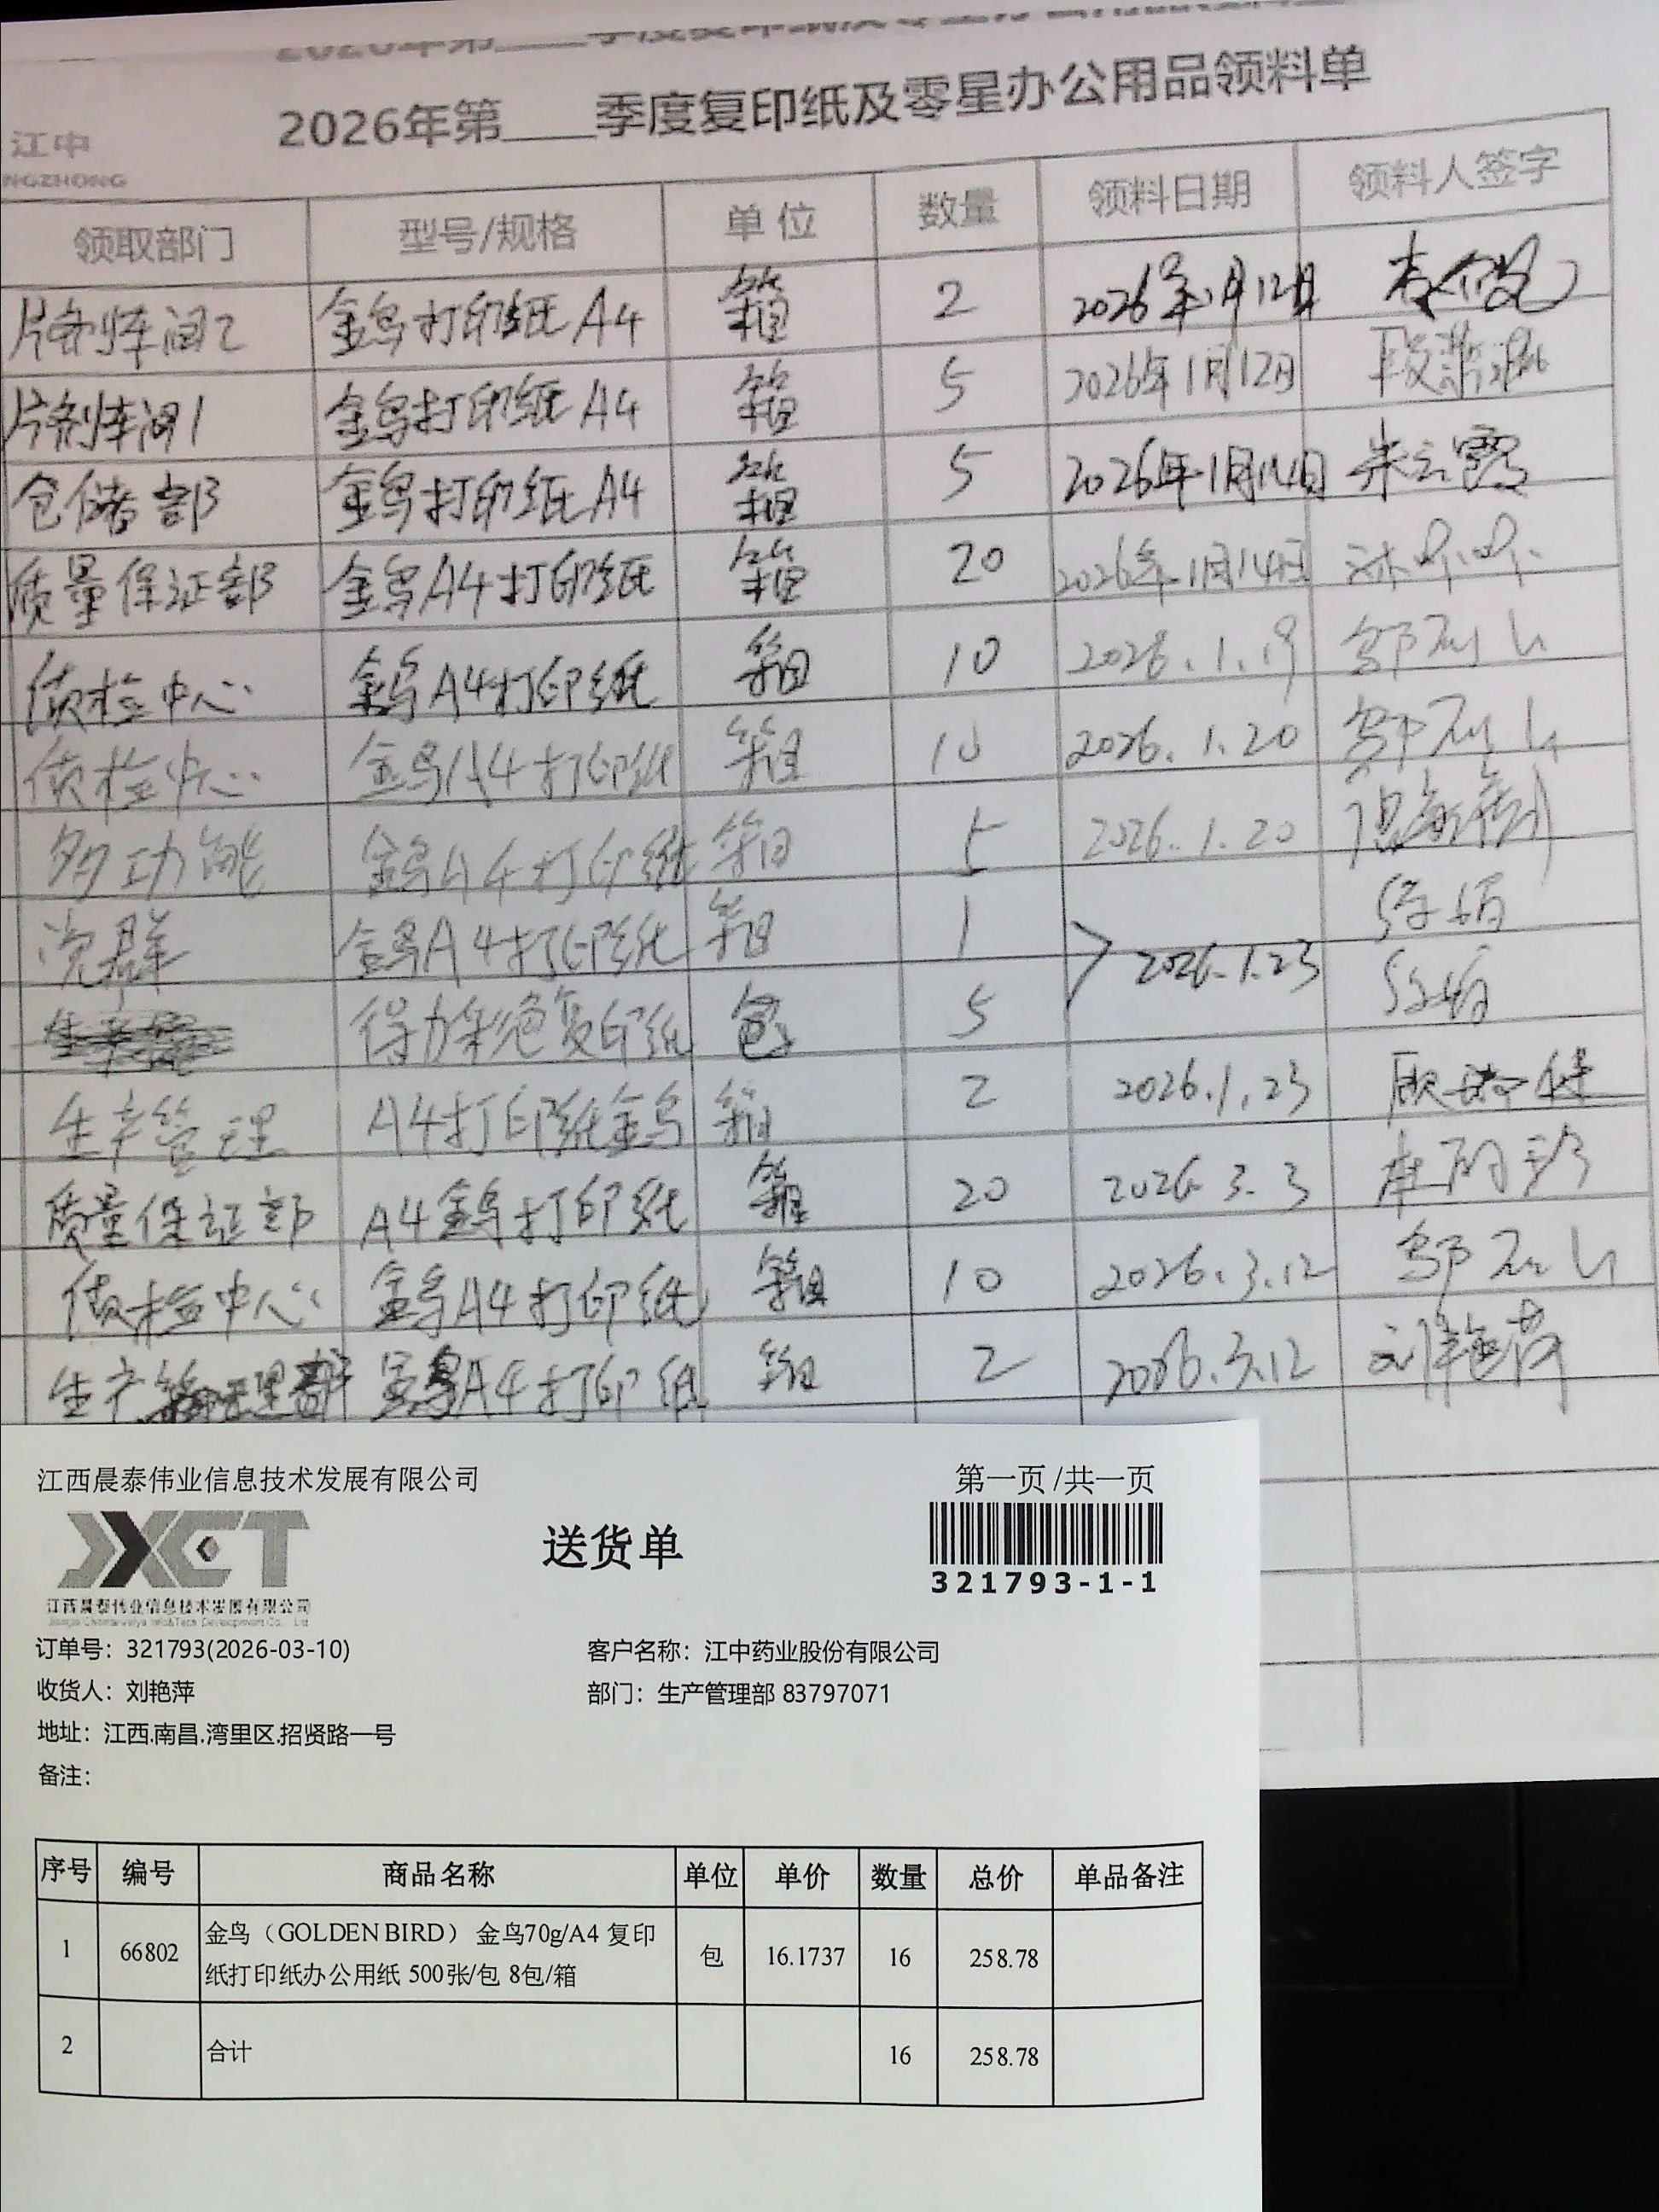 2026年第____季度复印纸及零星办公用品领料单
江中
领取部门 型号/规格 单位 数量 领料日期 领料人签字
片剂车间2 金鸟打印纸A4 箱 2 2026年1月12日
片剂车间1 金鸟打印纸A4 箱 5 2026年1月12日
仓储部 金鸟打印纸A4 箱 5 2026年1月14日 朱云霞
质量保证部 金鸟A4打印纸 箱 20 2026年1月14日
质检中心 金鸟A4打印纸 箱 10 2026.1.19
质检中心 金鸟A4打印纸 箱 10 2026.1.20
多功能 金鸟A4打印纸 箱 5 2026.1.20
党群 金鸟A4打印纸 箱 1 2026.1.23
得力彩色复印纸 包 5
生产管理 A4打印纸金鸟 箱 2 2026.1.23
质量保证部 A4金鸟打印纸 箱 20 2026.3.3
质检中心 金鸟A4打印纸 箱 10 2026.3.12
生产管理部 金鸟A4打印纸 箱 2 2026.3.12 刘艳萍
江西晨泰伟业信息技术发展有限公司
第一页/共一页
JXCT
江西晨泰伟业信息技术发展有限公司
送货单
321793-1-1
订单号：321793(2026-03-10) 客户名称：江中药业股份有限公司
收货人：刘艳萍 部门：生产管理部 83797071
地址：江西.南昌.湾里区.招贤路一号
备注：
序号 编号 商品名称 单位 单价 数量 总价 单品备注
1 66802 金鸟（GOLDEN BIRD） 金鸟70g/A4 复印
纸打印纸办公用纸 500张/包 8包/箱 包 16.1737 16 258.78
2 合计 16 258.78